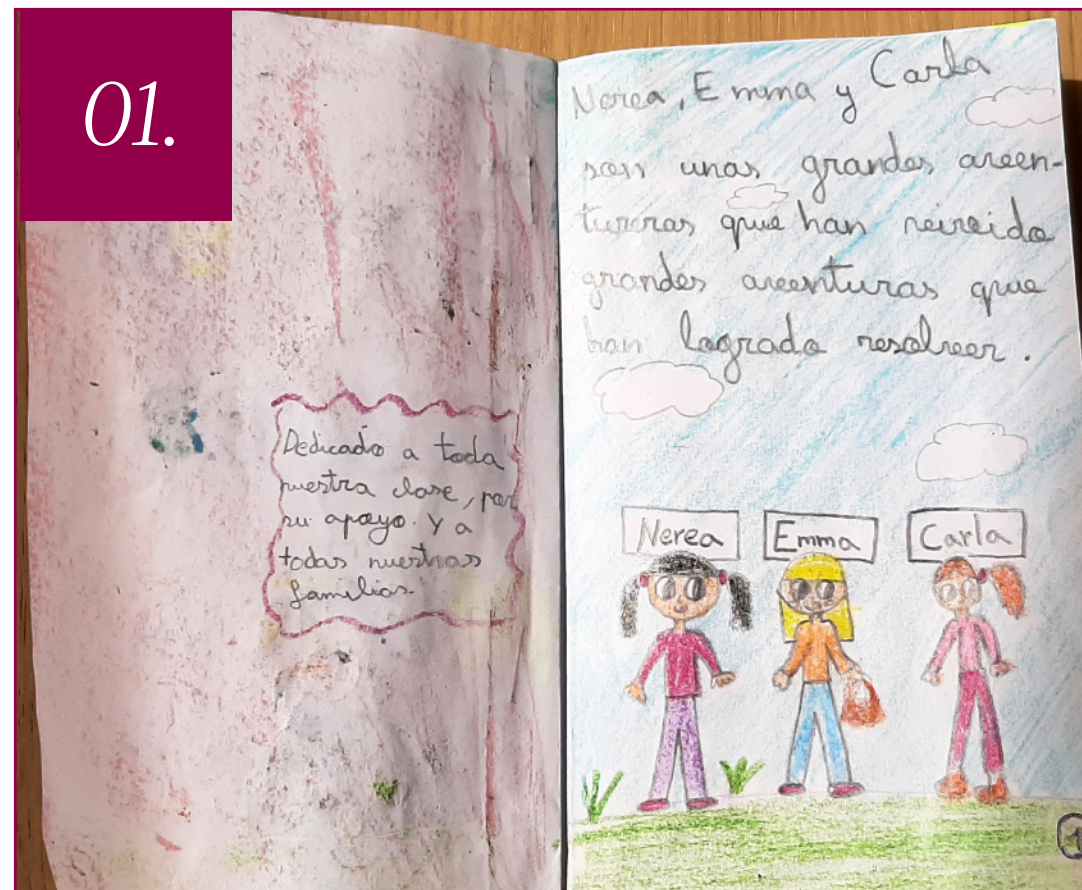 01.
Dedicado a toda
nuestra clase, por
su apoyo. Y a
todas nuestras
familias.
Nerea, Emma y Carla
son unas grandes aven-
tureras que han vivido
grandes aventuras que
han logrado resolver.
Nerea
Emma
Carla
1